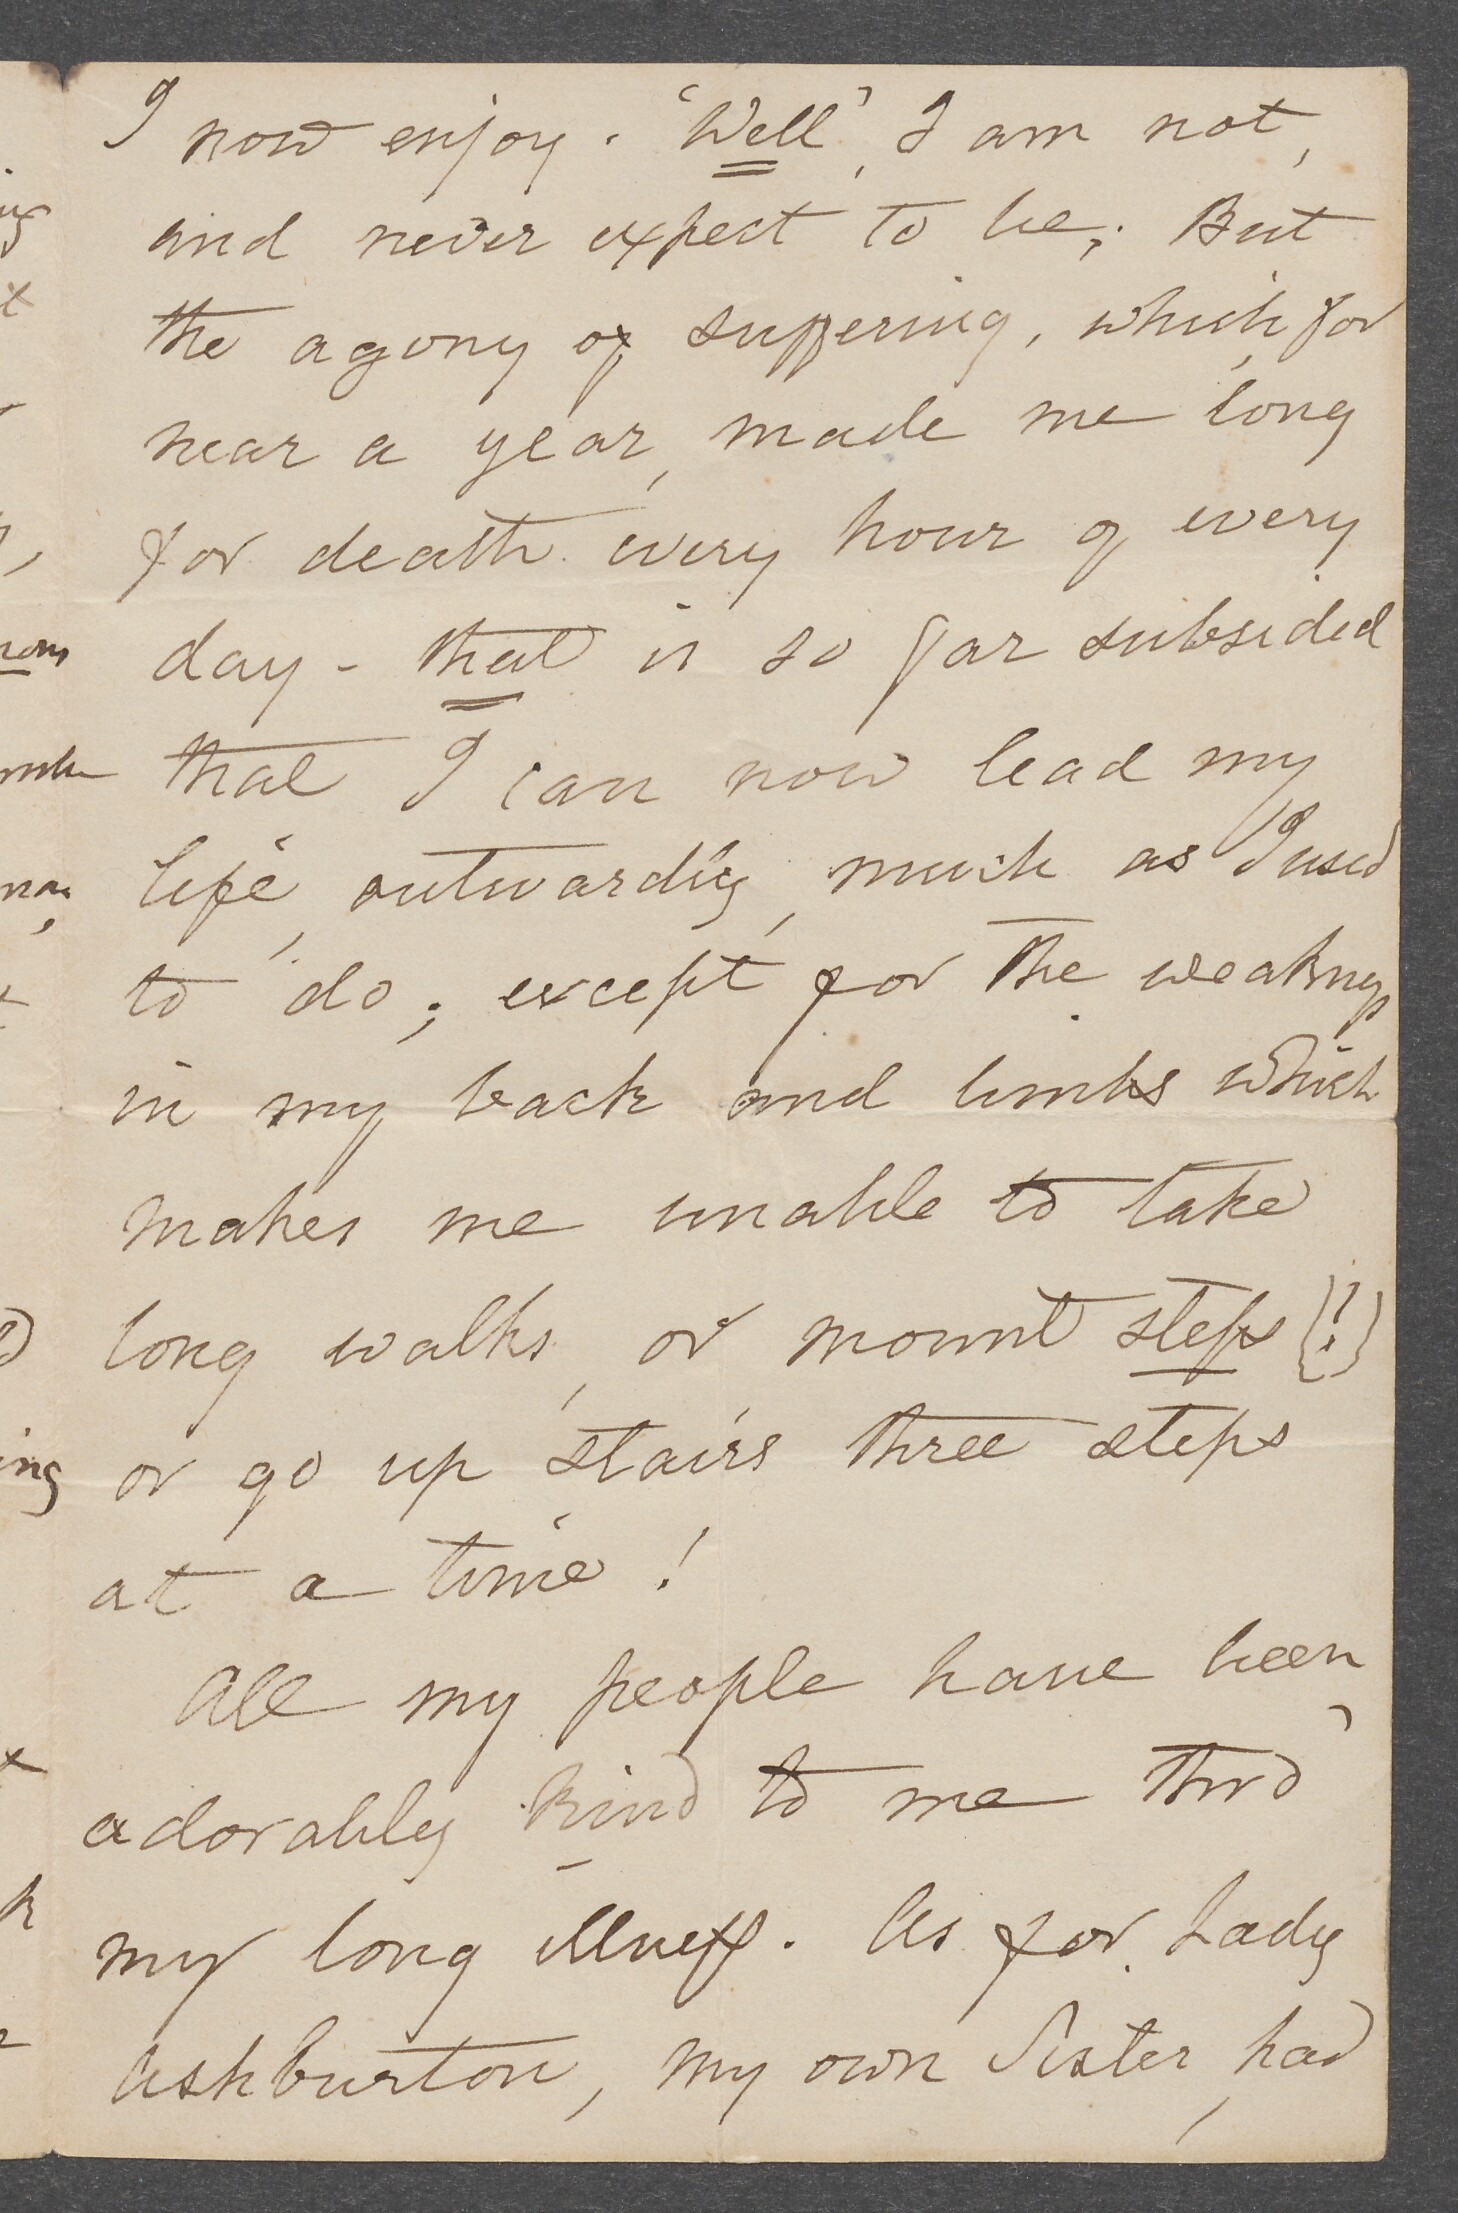 I now enjoy. 'Well', I am not,
and never expect to be; But
the agony of suffering, which, for
near a year, made me long
for death every hour of every
day - that is so far subsided
that I can now lead my
life, outwardly, much as I used
to do; except for the weakness
in my back and limbs which
makes me unable to take
long walks, or mount steps (!)
or go up stairs three steps
at a time!
All my people have been
adorably kind to me thro'
my long illness. As for Lady
Ashburton, my own Sister, had